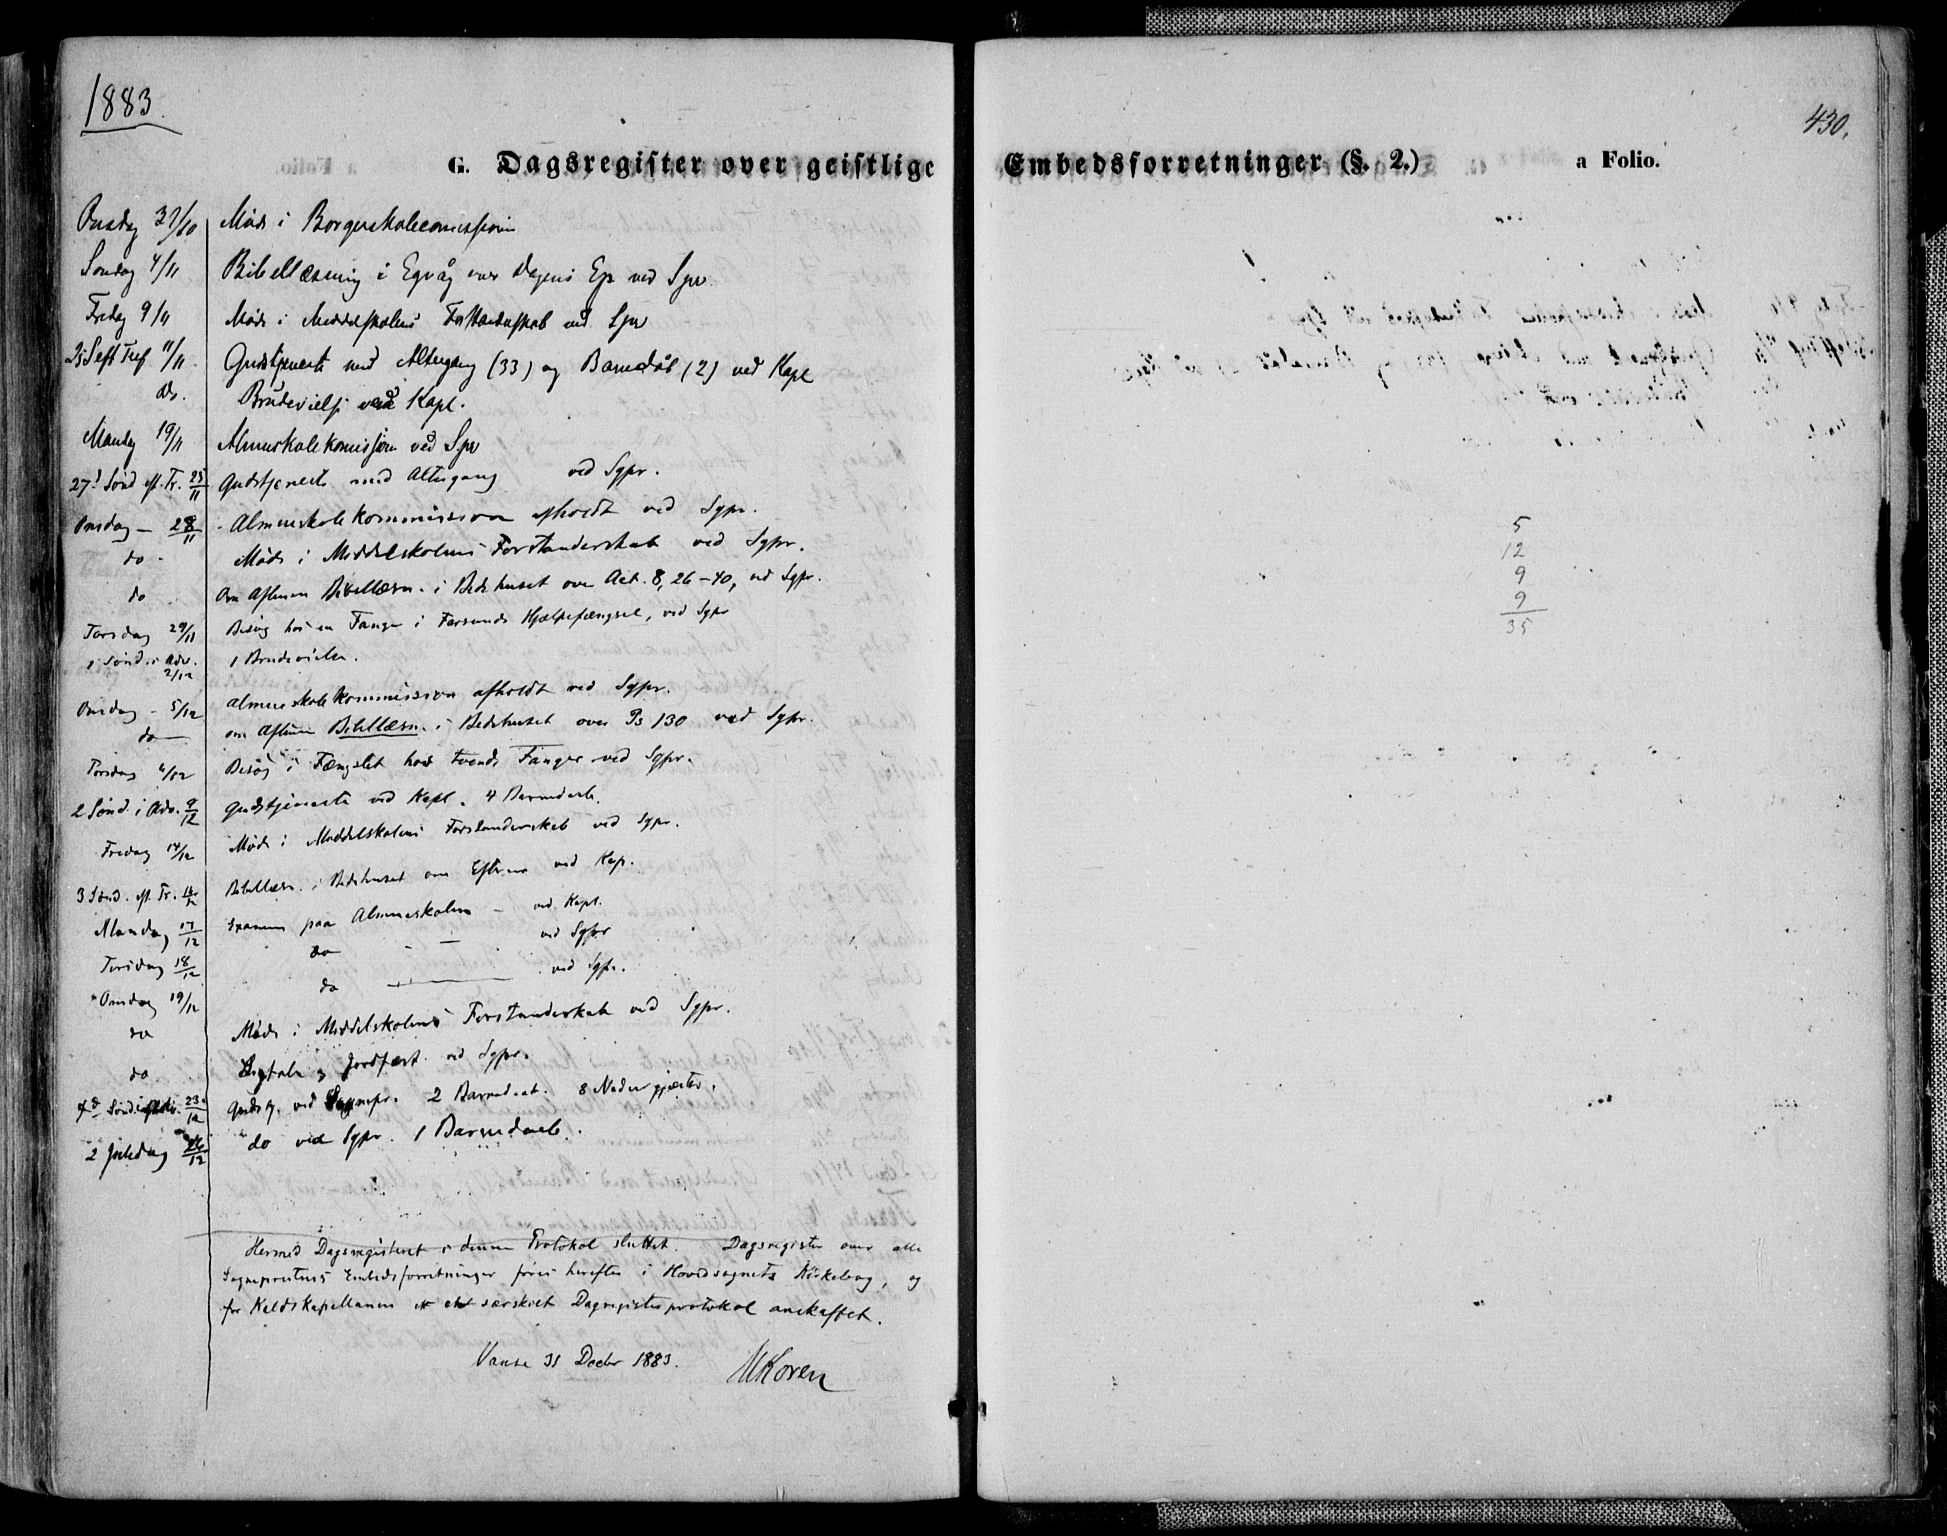 1883.
430.
G. Dagsregister over geistlige Embedsforretninger (§. 2.) a Folio.
Onsdag 31/10 Møde i Borgerskolecommissionen
Søndag 4/11 Bibellæsning i Egvåg over Dagens Ep ved Spr
Fredag 9/11 Møde i Middelskolens Forstanderskab ved Spr
25 Seft Tref 11/11 Gudstjeneste med Altergang (33) og Barnedåb (2) ved Kapl
Do. Brudevielse ved Kapl.
Mandag 19/11 Almueskolekomission ved Spr
27d Sønd. ef. Tr. 25/11 Gudstjeneste med Altergang ved Sgpr.
Onsdag - 28/11 Almueskolekommission afholdt ved Sgpr.
do - Møde i Middelskolens Forstanderskab ved Sgpr.
do Om Aftenen Bibellæsn. i Bedehuset over Act. 8, 26-40, ved Sgpr.
Torsdag 29/11 Besøg hos en Fange i Farsunds Hjælpefængsel, ved Sgpr
1 Sønd. i Adv. 2/12 1 Brudevielse.
Onsdag - 5/12 Almueskolekommission afholdt ved Sgpr.
do om Aftenen Bibellæsn. i Bedehuset over Ps 130 ved Sgpr.
Torsdag 6/12 Besøg i Fængslet hos tvende Fanger ved Sgpr.
2 Sønd. i Adv. 9/12 Gudstjeneste ved Kapl. 4 Barnedaab.
Fredag 14/12 Møde i Middelskolens Forstanderskab ved Sgpr.
3 Sønd. ef. Tr. 16/12 Bibellæsn. i Bedehuset om Efterm ved Kap.
Mandag 17/12 Examen paa Almueskolen - ved Kapl.
Tirsdag 18/12 do - ved Sgpr
Onsdag 19/12 do ved Sgpr.
do Møde i Middelskolens Forstanderskab ved Sgpr.
do Ligtale og Jordfæst. ved Sgpr.
4de Sønd. i Adv. 23/12 Gudstj. ved Sognepr. 2 Barnedaab. 8 Nadvergjæster.
2 Juledag 26/12 do ved Sgpr. 1 Barnedaab.
Hermed Dagsregisteret i denne Protokol sluttet. Dagsregister over alle
Sognepræstens Embedsforretninger føres herefter i Hovedsognets Kirkebog, og
for Kaldskapellanen er et særskilt Dagregisterprotokol anskaffet.
Vanse 31 Decbr 1883. Koren
5
12
9
9
35